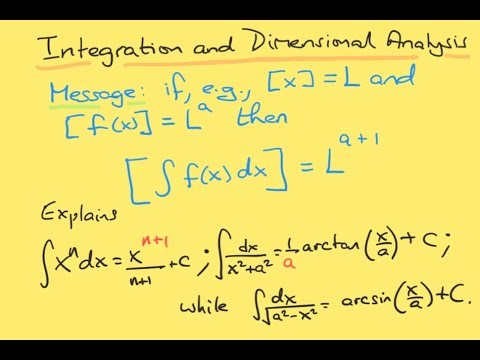 Integration and Dimensional Analysis
Message: if, e.g., [x] = L and
[f(x)] = L^a then
[∫ f(x) dx] = L^{a+1}
Explains
∫x^n dx = x^{n+1}/(n+1) + C ; ∫ dx/(x²+a²) = 1/a arctan(x/a) + C ;
while ∫ dx/√(a²-x²) = arcsin(x/a) + C.